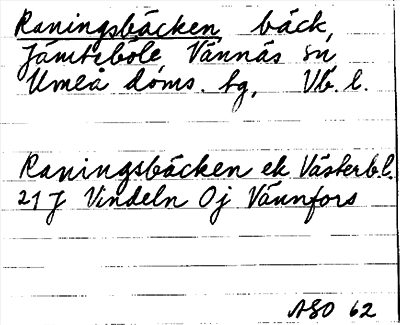 Raningsbäcken, bäck,
Jämteböle, Vännäs sn
Umeå doms. tg, Vb. l.
Raningsbäcken ek Västerb.l.
21 J Vindeln Oj Vännfors
ASO 62